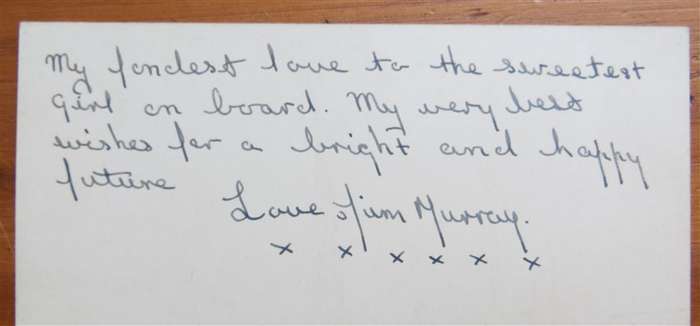 My fondest love to the sweetest
girl on board. My very best
wishes for a bright and happy
future
Love Jim Murray.
x x x x x x